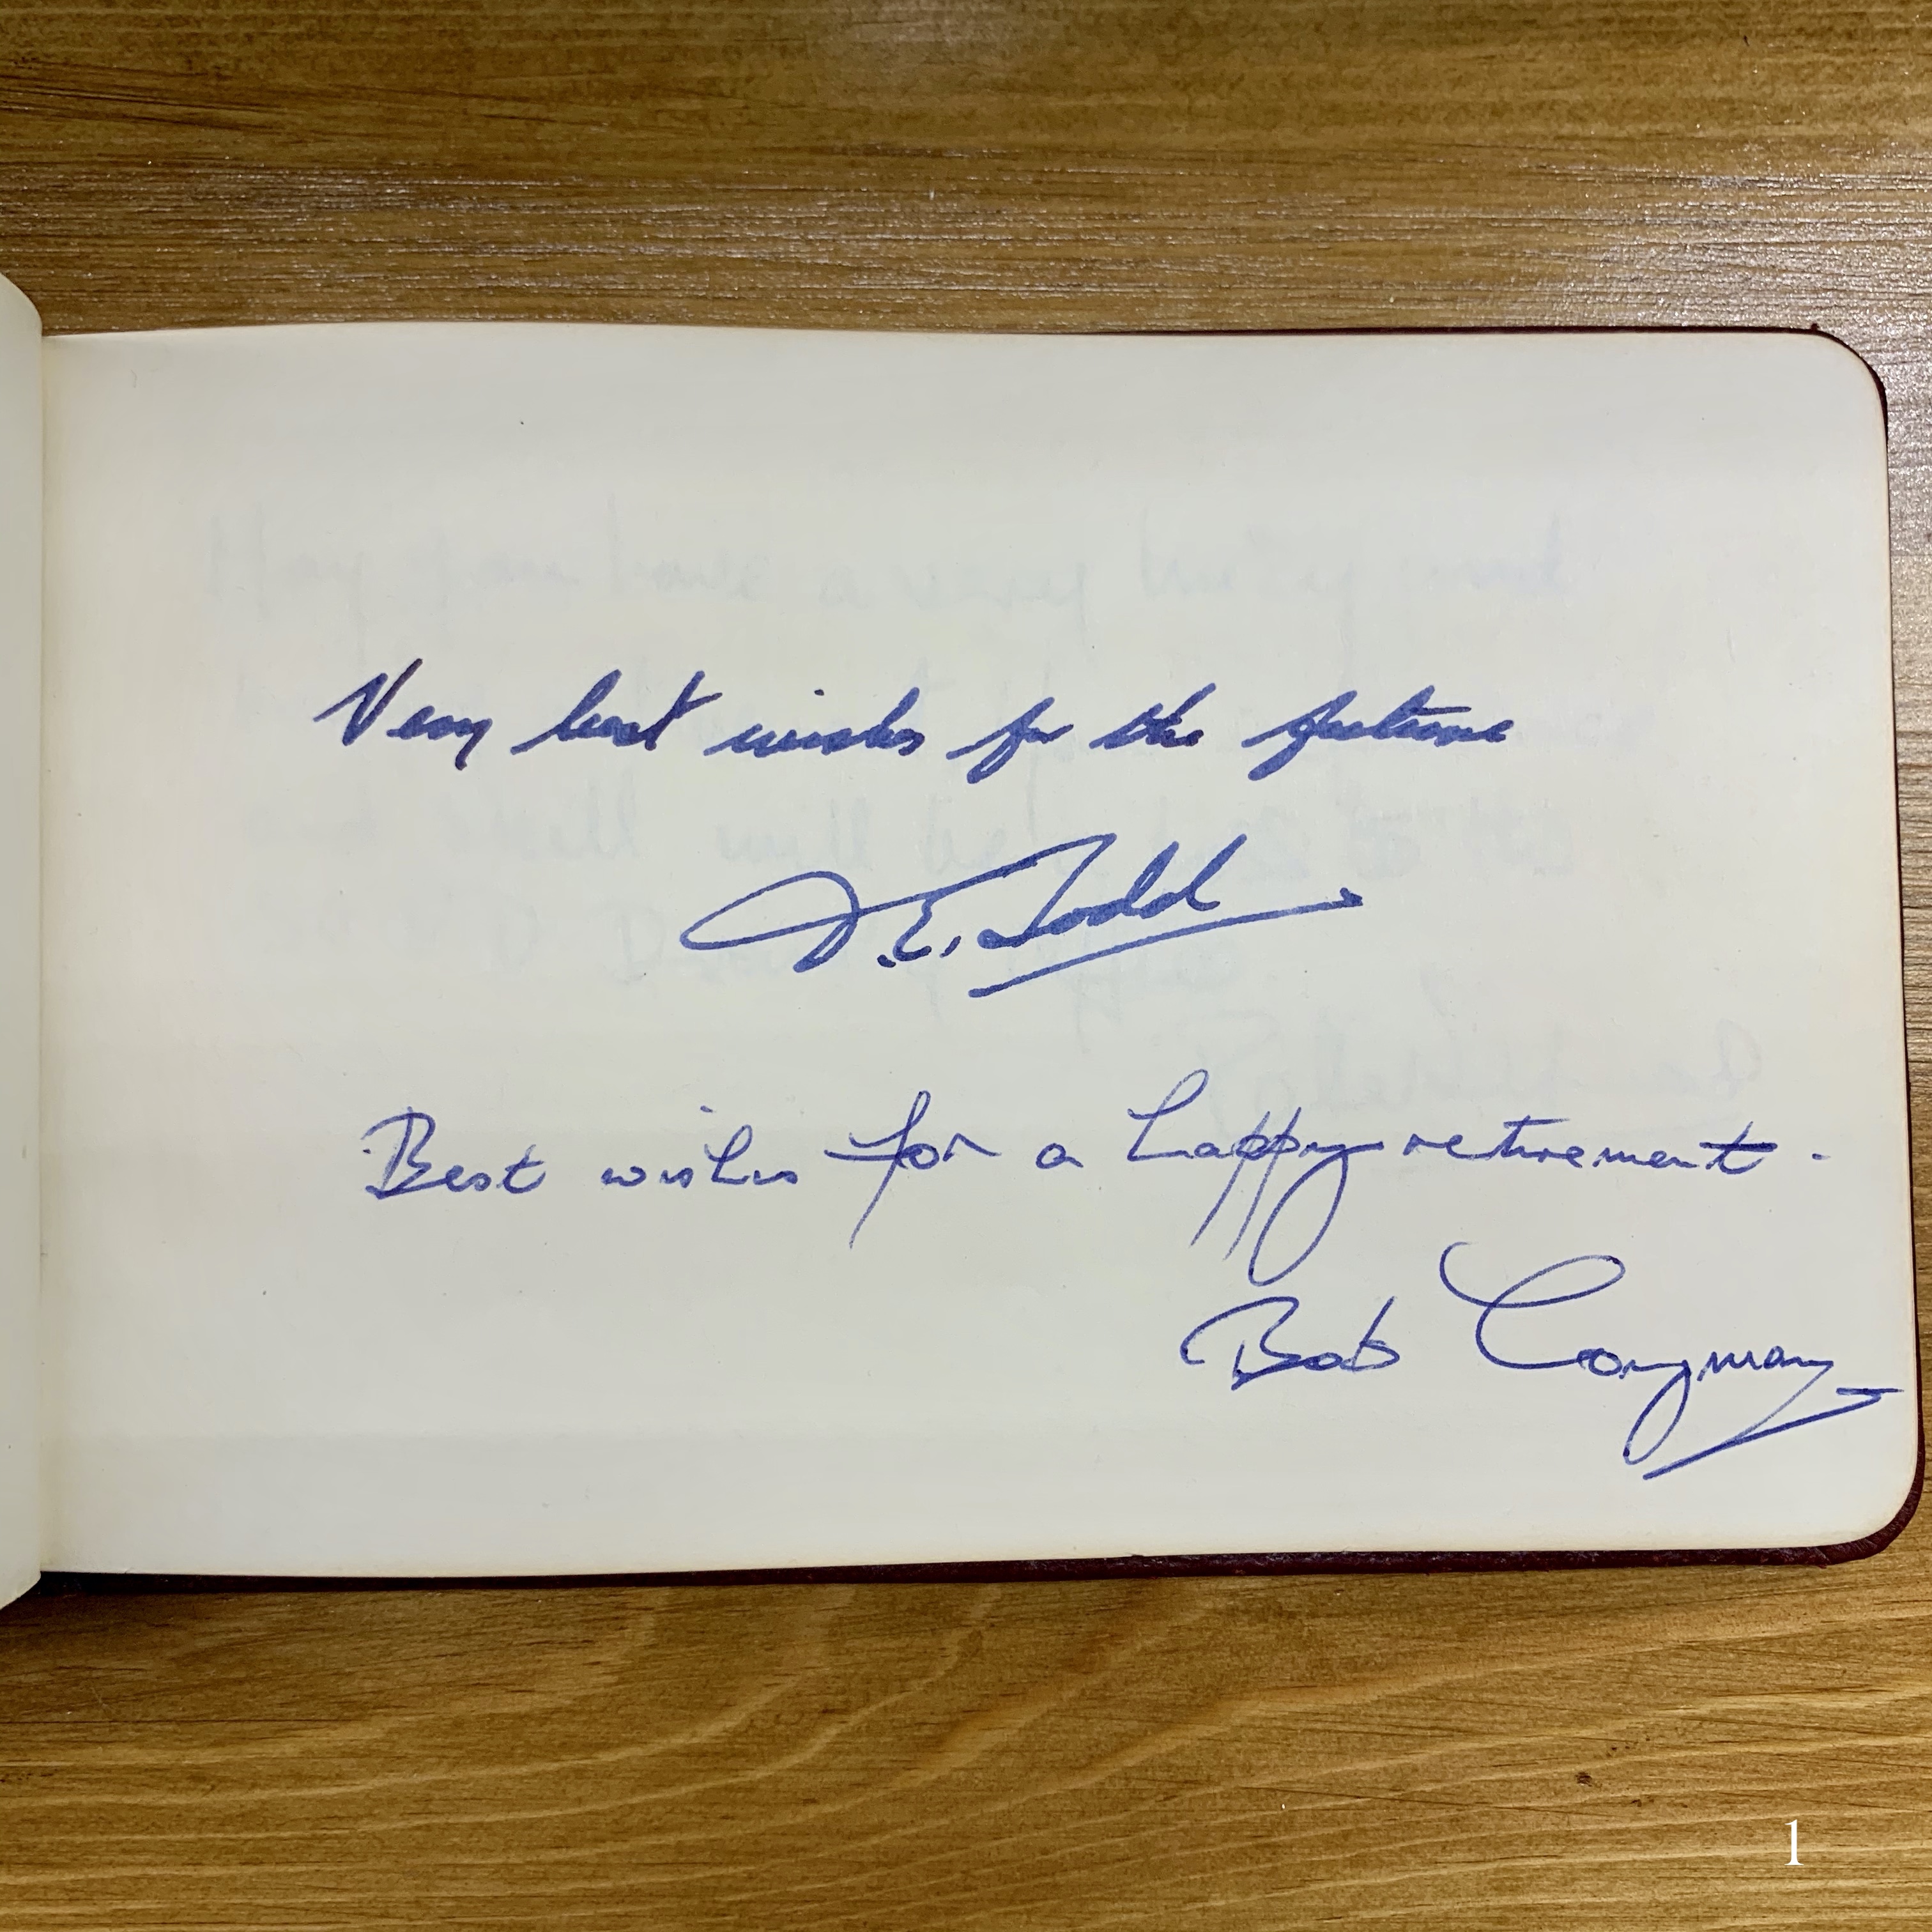 Very best wishes for the future
J.E. Todd
Best wishes for a happy retirement.
Bob
1